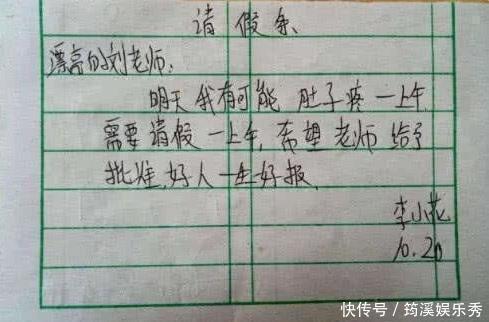 请假条
漂亮的刘老师:
明天我有可能肚子疼一上午
需要请假一上午,希望老师给予
批准,好人一生好报,
李小花
10.20
快传号/筠溪娱乐秀